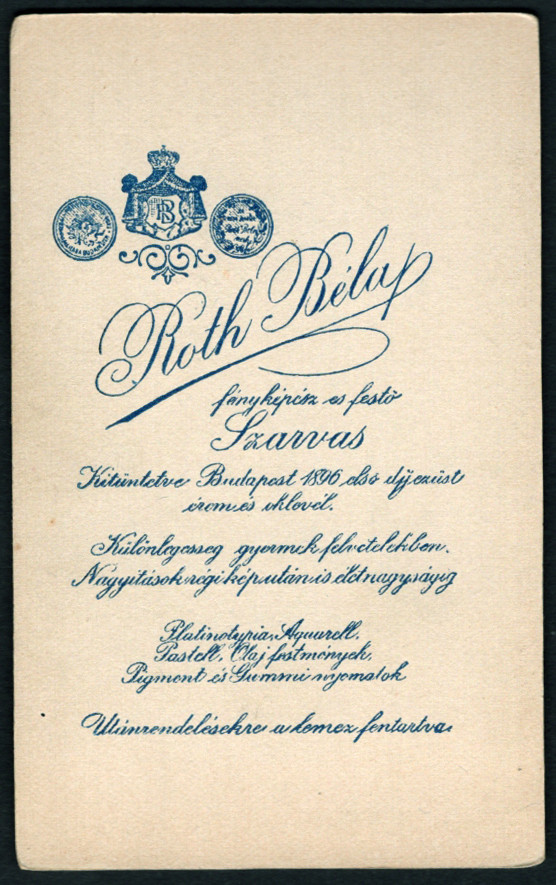 RB
Roth Béla
fényképész es festő
Szarvas
Kitüntetve Budapest 1896 elsö dij ezüst
érom és oklevél.
Különlegesseg gyermek felvetelekben.
Nagyitások régi kép után is életnagyságig
Platinotypia, Aquarell.
Pastell, Olaj festmények,
Pigment és Gummi nyomatok
Utánrendelésekre a lemez fentartva.